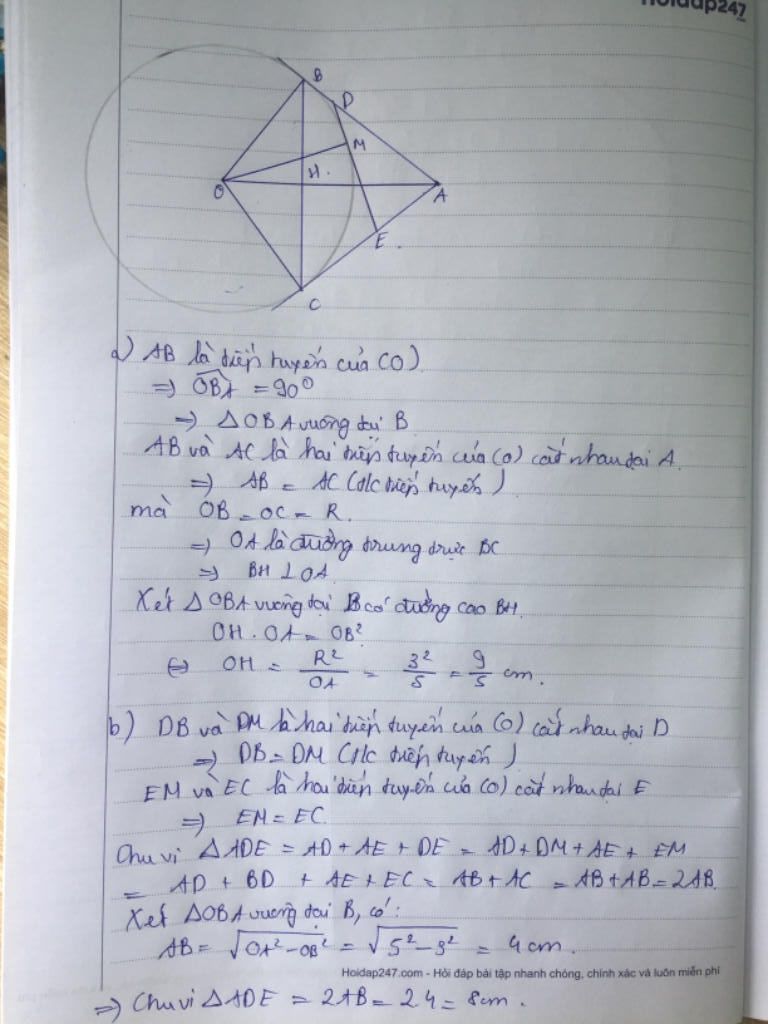 Hoidap247
B
D
M
H
O
A
E
C
a) AB là tiếp tuyến của (O)
=> OBA = 90°
=> △OBA vuông tại B
AB và AC là hai tiếp tuyến của (O) cắt nhau tại A.
=> AB = AC (t/c tiếp tuyến)
mà OB = OC = R.
=> OA là đường trung trực BC
=> BH ⊥ OA
Xét △OBA vuông tại B có đường cao BH.
OH . OA = OB²
<=> OH = R²/OA = 3²/5 = 9/5 cm.
b) DB và DM là hai tiếp tuyến của (O) cắt nhau tại D
=> DB = DM (t/c tiếp tuyến)
EM và EC là hai tiếp tuyến của (O) cắt nhau tại E
=> EM = EC.
Chu vi △ADE = AD + AE + DE = AD + DM + AE + EM
= AD + BD + AE + EC = AB + AC = AB + AB = 2AB.
Xét △OBA vuông tại B, có:
AB = √OA² - OB² = √5² - 3² = 4 cm.
Hoidap247.com - Hỏi đáp bài tập nhanh chóng, chính xác và luôn miễn phí
=> Chu vi △ADE = 2AB = 2.4 = 8cm.